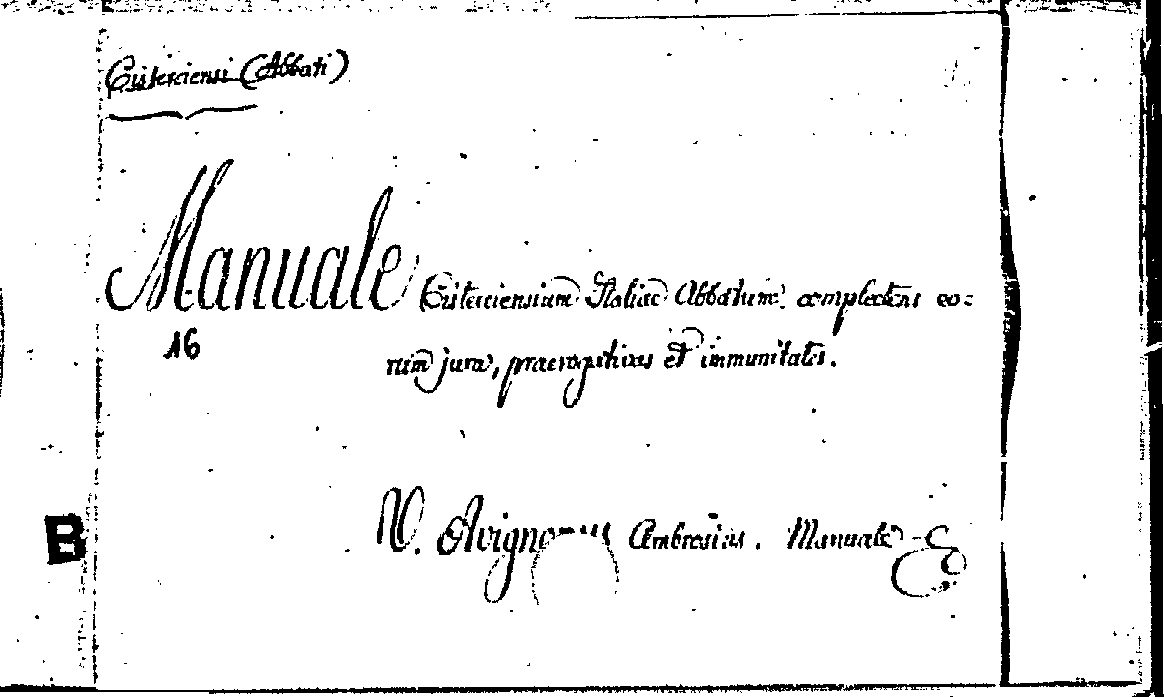 Cisterciensi (Abbati)
Manuale Cisterciensium Italiae Abbatum complectens eo=
16
rum jura, praerogativas et immunitates.
B
V. Avignonus Ambrosius. Manuale &